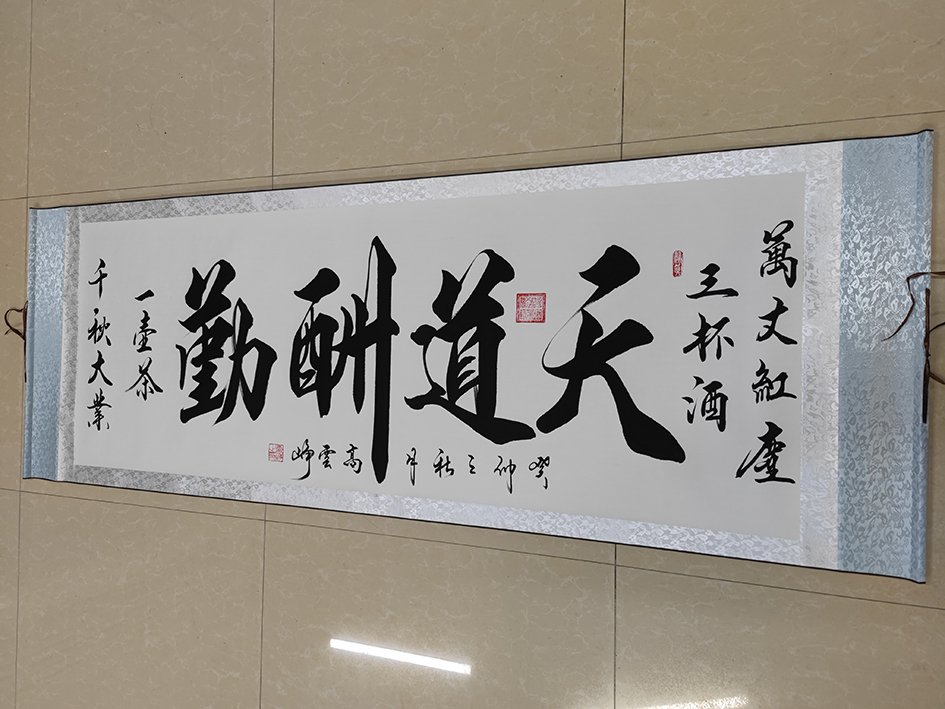 萬丈紅塵
三杯酒
天道酬勤
一壺茶
千秋大業
癸卯之秋月 高雲崢